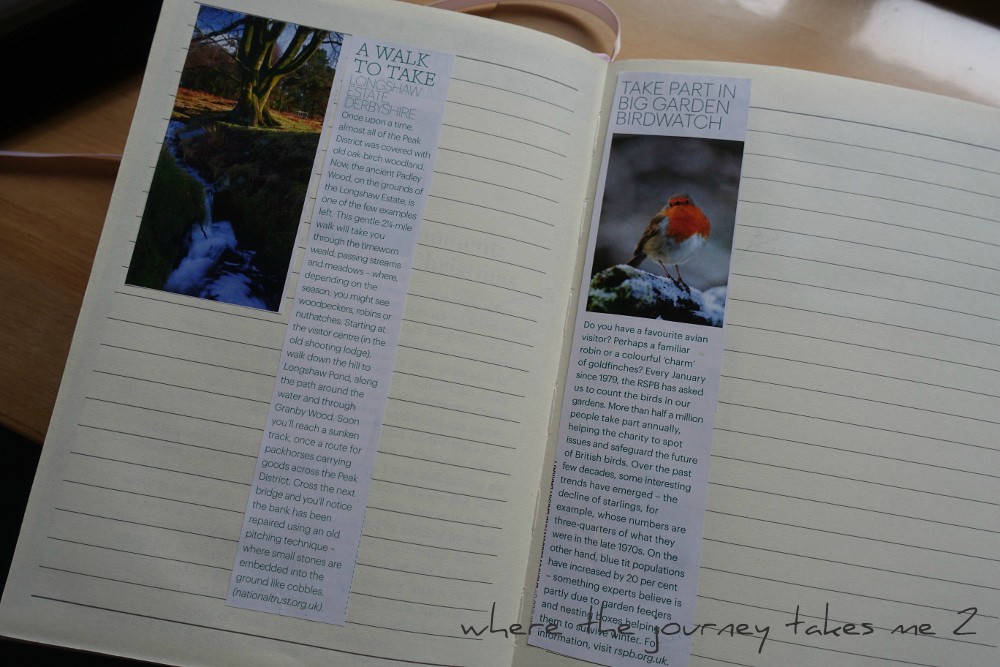 A WALK
TO TAKE
LONGSHAW
ESTATE,
DERBYSHIRE
Once upon a time,
almost all of the Peak
District was covered with
old oak-birch woodland.
Now, the ancient Padley
Wood, on the grounds of
the Longshaw Estate, is
one of the few examples
left. This gentle 2¼-mile
walk will take you
through the timeworn
weald, passing streams
and meadows – where,
depending on the
season, you might see
woodpeckers, robins or
nuthatches. Starting at
the visitor centre (in the
old shooting lodge),
walk down the hill to
Longshaw Pond, along
the path around the
water and through
Granby Wood. Soon
you'll reach a sunken
track, once a route for
packhorses carrying
goods across the Peak
District. Cross the next
bridge and you'll notice
the bank has been
repaired using an old
pitching technique –
where small stones are
embedded into the
ground like cobbles.
(nationaltrust.org.uk)
TAKE PART IN
BIG GARDEN
BIRDWATCH
Do you have a favourite avian
visitor? Perhaps a familiar
robin or a colourful 'charm'
of goldfinches? Every January
since 1979, the RSPB has asked
us to count the birds in our
gardens. More than half a million
people take part annually,
helping the charity to spot
issues and safeguard the future
of British birds. Over the past
few decades, some interesting
trends have emerged – the
decline of starlings, for
example, whose numbers are
three-quarters of what they
were in the late 1970s. On the
other hand, blue tit populations
have increased by 20 per cent
– something experts believe is
partly due to garden feeders
and nesting boxes helping
them to survive winter. For
information, visit rspb.org.uk.
where the journey takes me 2